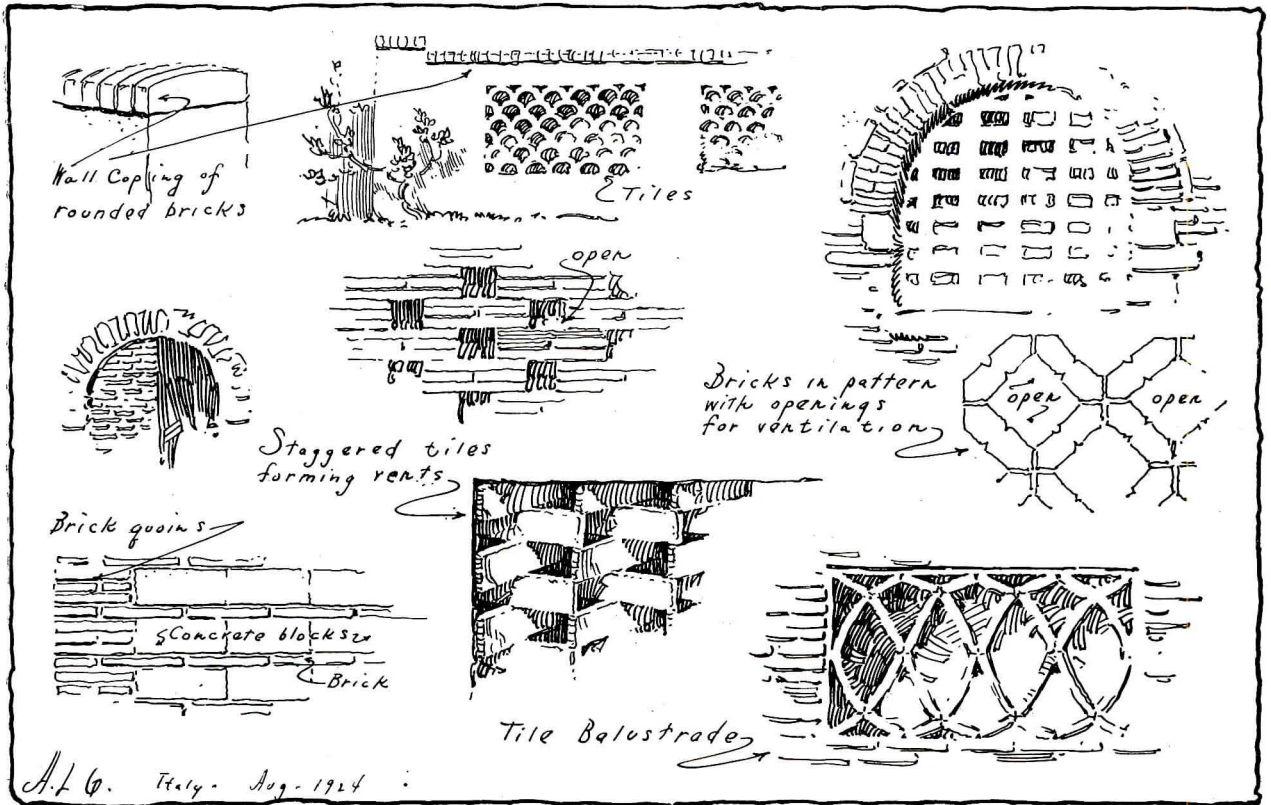 Wall Coping of
rounded bricks
Tiles
open
Bricks in pattern
with openings
for ventilation
open
open
Staggered tiles
forming vents
Brick quoins
Concrete blocks
Brick
Tile Balustrade
Italy - Aug - 1924